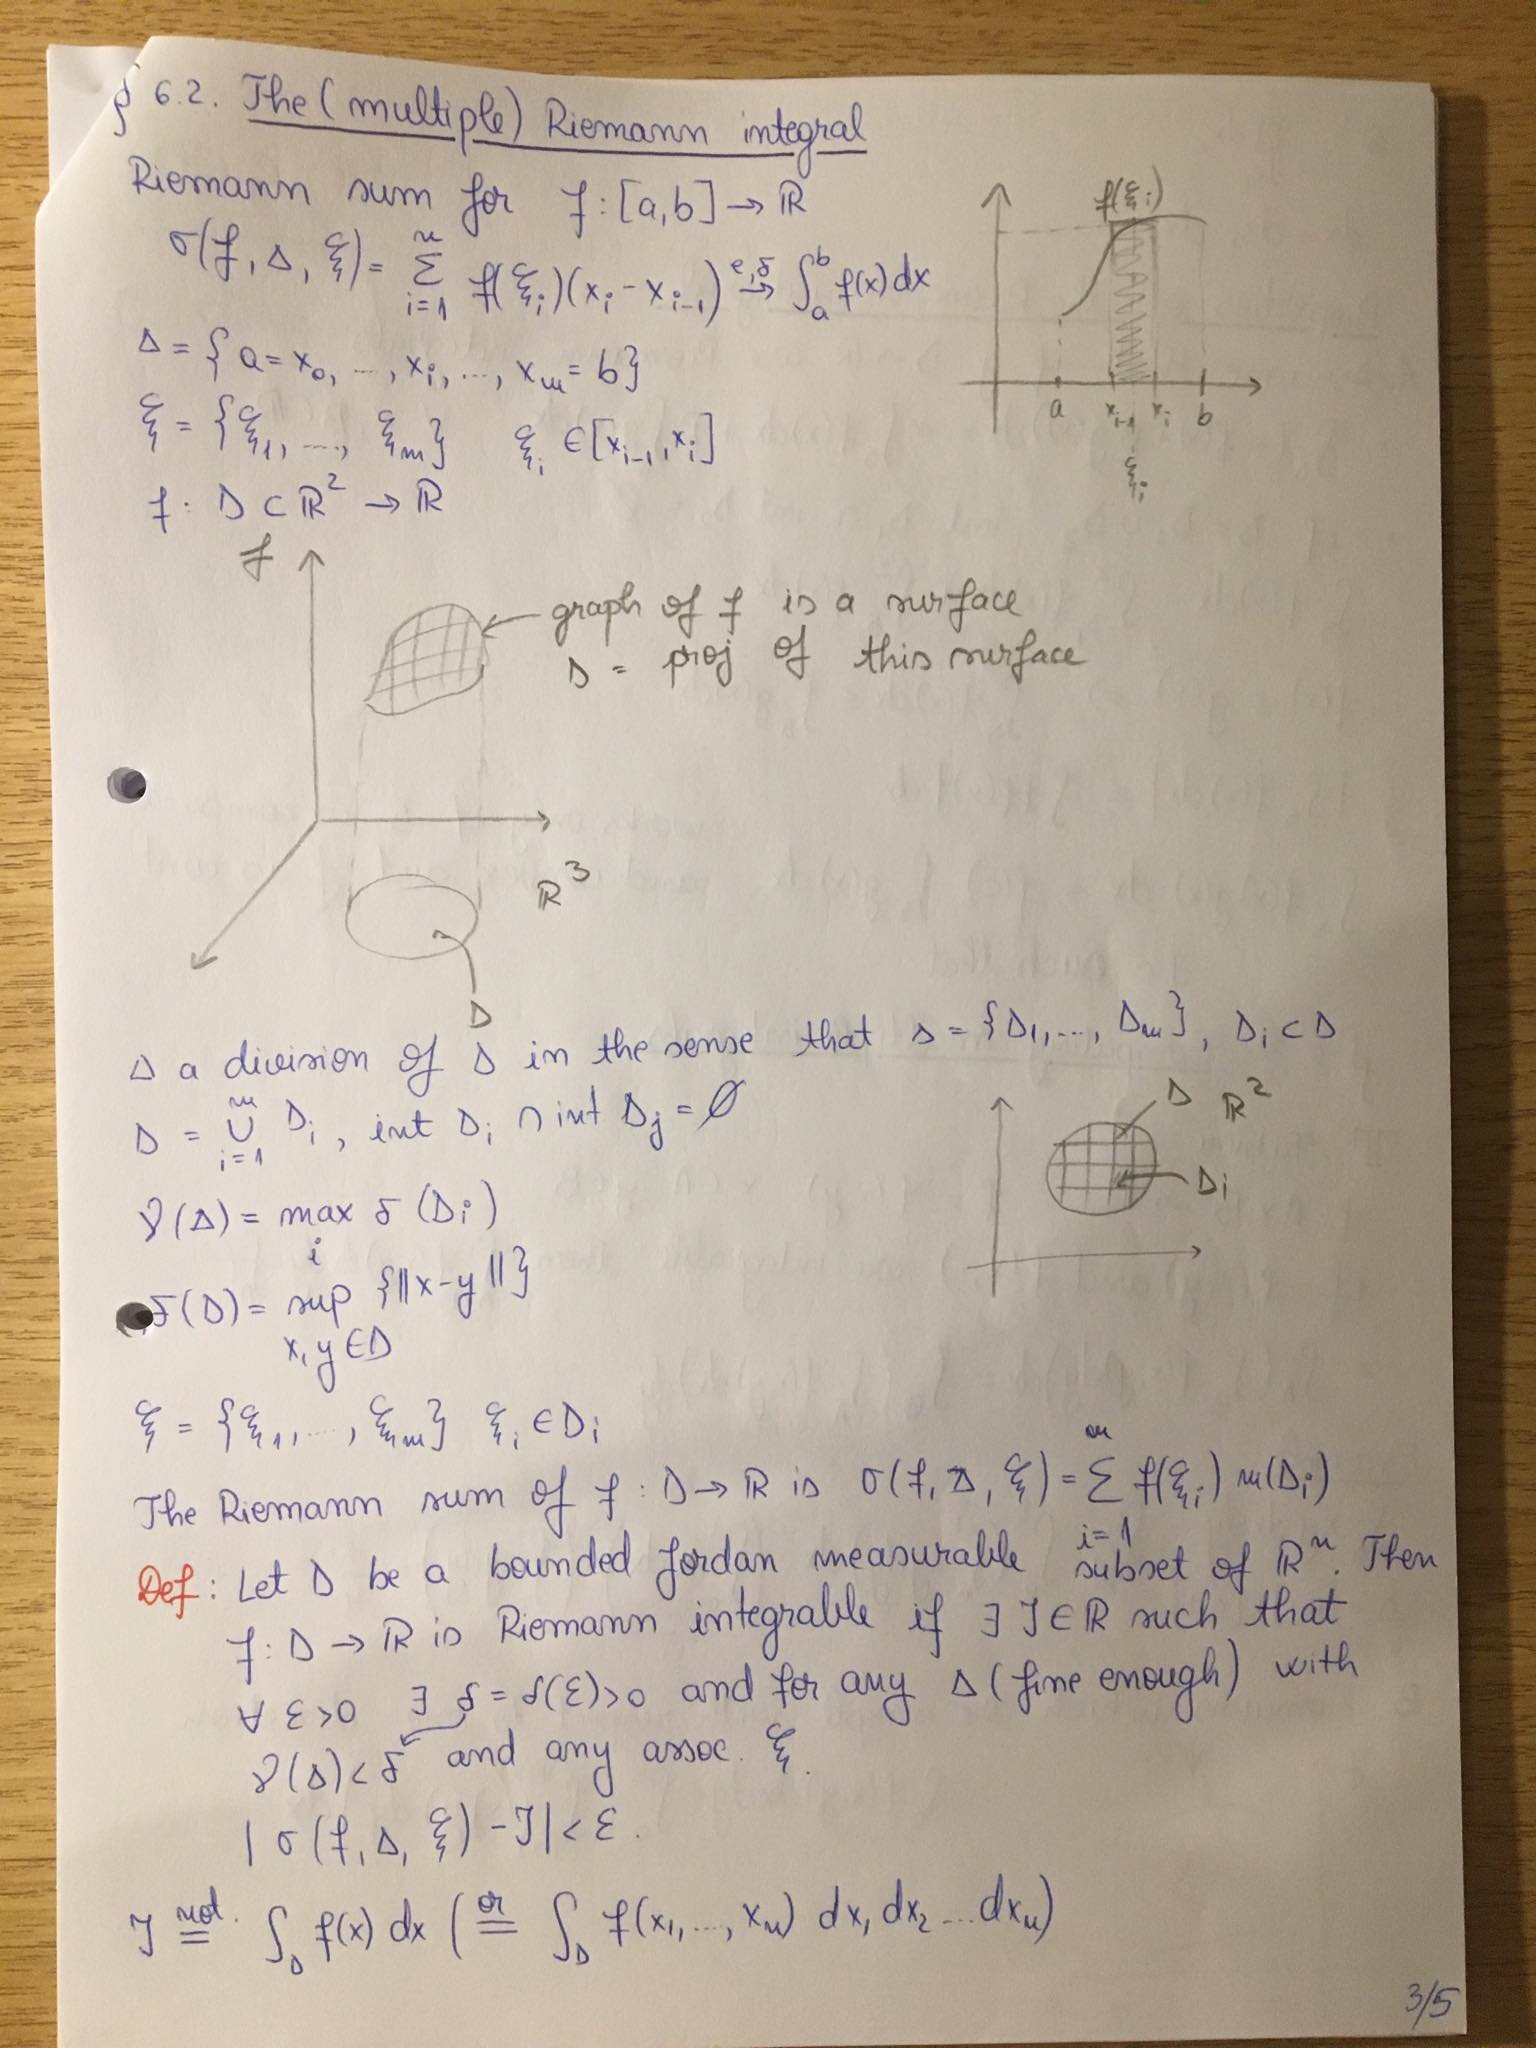 § 6.2. The (multiple) Riemann integral
Riemann sum for f : [a,b] → ℝ
σ(f, Δ, ξ) = Σ_{i=1}^{n} f(ξ_i)(x_i − x_{i−1}) →^{ε,δ} ∫_a^b f(x) dx
Δ = {a = x_0, ..., x_i, ..., x_m = b}
ξ = {ξ_1, ..., ξ_m} ξ_i ∈ [x_{i−1}, x_i]
f(ξ_i)
a x_{i−1} x_i b
ξ_i
f : D ⊂ ℝ² → ℝ
f
graph of f is a surface
D = proj of this surface
ℝ³
D
Δ a division of D in the sense that Δ = {D_1, ..., D_m}, D_i ⊂ D
D = ∪_{i=1}^{m} D_i, int D_i ∩ int D_j = ∅
D ℝ²
D_i
ν(Δ) = max_i δ(D_i)
δ(D) = sup_{x,y∈D} {||x−y||}
ξ = {ξ_1, ..., ξ_m} ξ_i ∈ D_i
The Riemann sum of f : D → ℝ is σ(f, Δ, ξ) = Σ_{i=1}^{m} f(ξ_i) m(D_i)
Def: Let D be a bounded Jordan measurable subset of ℝⁿ. Then
f : D → ℝ is Riemann integrable if ∃ I ∈ ℝ such that
∀ ε > 0 ∃ δ = δ(ε) > 0 and for any Δ (fine enough) with
ν(Δ) < δ and any assoc. ξ.
|σ(f, Δ, ξ) − I| < ε.
I =^{not.} ∫_D f(x) dx (=^{or} ∫_D f(x_1, ..., x_n) dx_1 dx_2 ... dx_n)
3/5